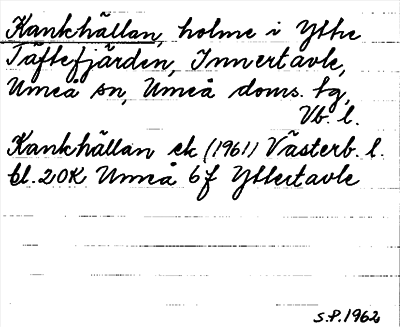 Kankhällan, holme i Yttre
Täftefjärden, Innertavle,
Umeå sn, Umeå doms. tg,
Vb. l.
Kankhällan ek (1961) Västerb. l.
bl. 20K Umeå 6f Yttertavle
S.P. 1962